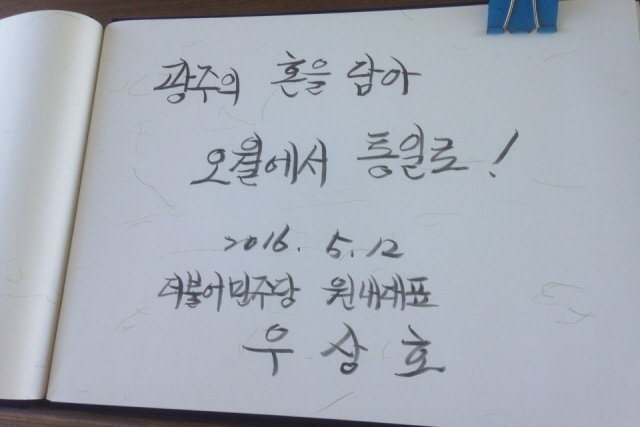 광주의 혼을 담아
오월에서 통일로!
2016. 5. 12
더불어민주당 원내대표
우상호